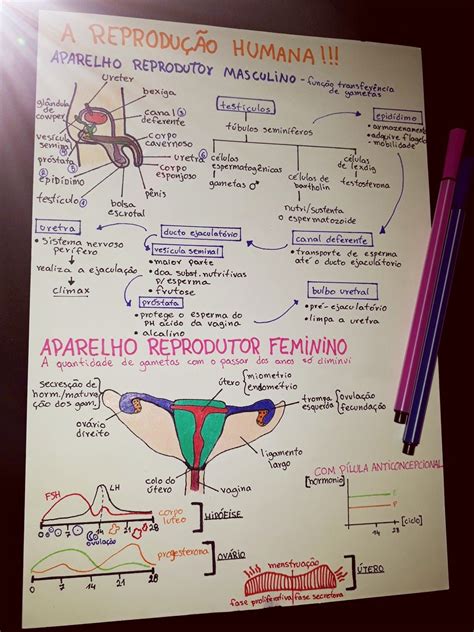 A REPRODUÇÃO HUMANA!!!
APARELHO REPRODUTOR MASCULINO - função transferência
de gametas
ureter
bexiga
glândula
de cowper
canal
deferente
corpo
cavernoso
vesícula
seminal
próstata
epidídimo
testículo
uretra
corpo
esponjoso
pênis
bolsa
escrotal
testículos
túbulos seminíferos
células
espermatogênicas
gametas ♂
células
de bartholin
nutri/sustenta
o espermatozoide
células
de leydig
testosterona
epidídimo
• armazenamento
• adquire flagelo
• mobilidade
uretra
• sistema nervoso
periférico
realiza a ejaculação
climax
ducto ejaculatório
vesícula seminal
• maior parte
• doa subst. nutritivas
p/ esperma
• frutose
próstata
• protege o esperma do
PH ácido da vagina
• alcalino
canal deferente
• transporte de esperma
até o ducto ejaculatório
bulbo uretral
• pré-ejaculatório
• limpa a uretra
APARELHO REPRODUTOR FEMININO
A quantidade de gametas com o passar dos anos só diminui
secreção de
horm./matura-
ção dos gam.
ovário
direito
útero
miométrio
endométrio
trompa
esquerda
ovulação
fecundação
ligamento
largo
colo do
útero
vagina
FSH
LH
corpo
lúteo
0 7 14 21 28
ovulação
HIPÓFISE
progesterona
0 7 14 21 28
OVÁRIO
COM PÍLULA ANTICONCEPCIONAL
[hormônio]
E
P
[ciclo]
menstruação
fase proliferativa
fase secretora
ÚTERO